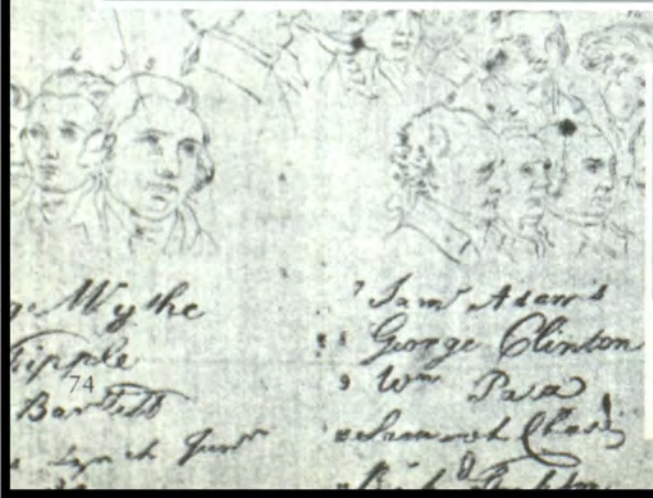 ge Wythe
hipple
74
Bartlett
Lynch Junr
7 Saml Adams
8 George Clinton
9 Wm Paca
Samuel Chase